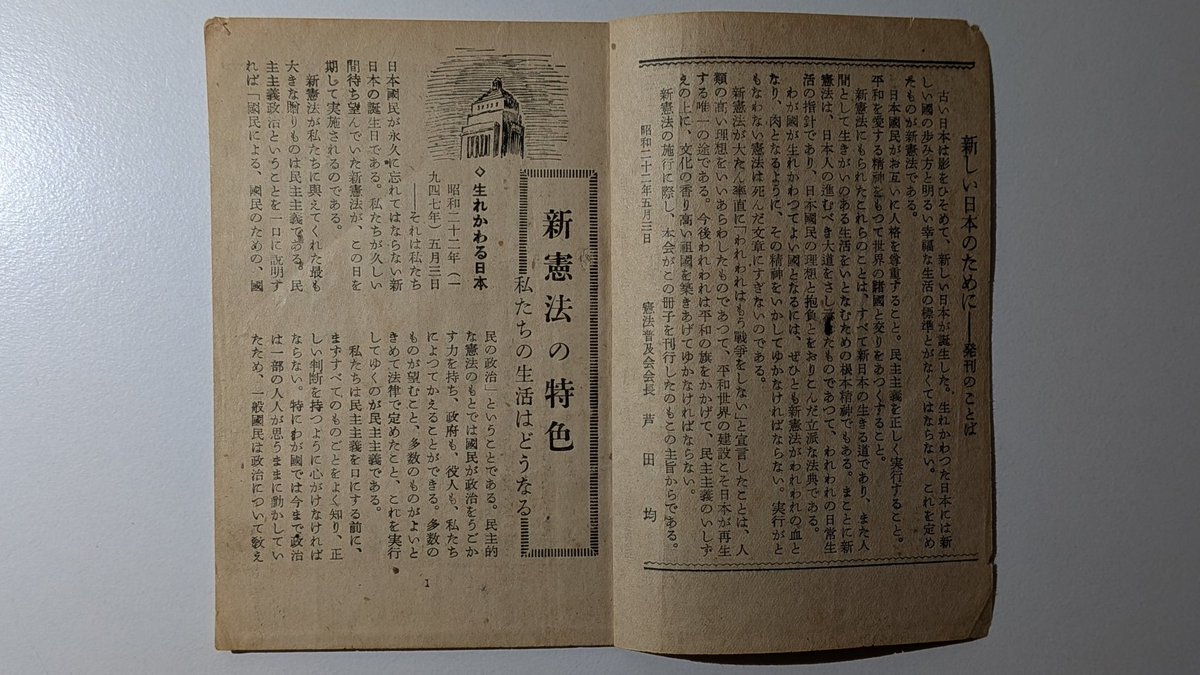 新しい日本のために――発刊のことば
古い日本は影をひそめて、新しい日本が誕生した。生れかわつた日本には新
しい國の歩み方と明るい幸福な生活の標準とがなくてはならない。これを定め
たものが新憲法である。
日本國民がお互いに人格を尊重すること。民主主義を正しく実行すること。
平和を愛する精神をもつて世界の諸國と交りをあつくすること。
新憲法にもられたこれらのことは、すべて新日本の生きる道であり、また人
間として生きがいのある生活をいとなむための根本精神でもある。まことに新
憲法は、日本人の進むべき大道をさし示したものであつて、われわれの日常生
活の指針であり、日本國民の理想と抱負とをおりこんだ立派な法典である。
わが國が生れかわつてよい國となるには、ぜひとも新憲法がわれわれの血と
なり、肉となるように、その精神をいかしてゆかなければならない。実行がと
もなわない憲法は死んだ文章にすぎないのである。
新憲法が大たん率直に「われわれはもう戰爭をしない」と宣言したことは、人
類の高い理想をいいあらわしたものであつて、平和世界の建設こそ日本が再生
する唯一の途である。今後われわれは平和の旗をかかげて、民主主義のいしず
えの上に、文化の香り高い祖國を築きあげてゆかなければならない。
新憲法の施行に際し、本会がこの冊子を刊行したのもこの主旨からである。
昭和二十二年五月三日
憲法普及会会長 芦田均
新憲法の特色
私たちの生活はどうなる
◇生れかわる日本
昭和二十二年(一
九四七年)五月三日
――それは私たち
日本國民が永久に忘れてはならない新
日本の誕生日である。私たちが久しい
間待ち望んでいた新憲法が、この日を
期して実施されるのである。
新憲法が私たちに與えてくれた最も
大きな贈りものは民主主義である。民
主主義政治ということを一口に説明す
れば「國民による、國民のための、國
民の政治」ということである。民主的
な憲法のもとでは國民が政治をうごか
す力を持ち、政府も、役人も、私たち
によつてかえることができる。多数の
ものが望むこと、多数のものがよいと
きめて法律で定めたこと、これを実行
してゆくのが民主主義である。
私たちは民主主義を口にする前に、
まずすべてのものごとをよく知り、正
しい判断を持つように心がけなければ
ならない。特にわが國では今まで政治
は一部の人人が思うままに動かしてい
たため、一般國民は政治について教え
1